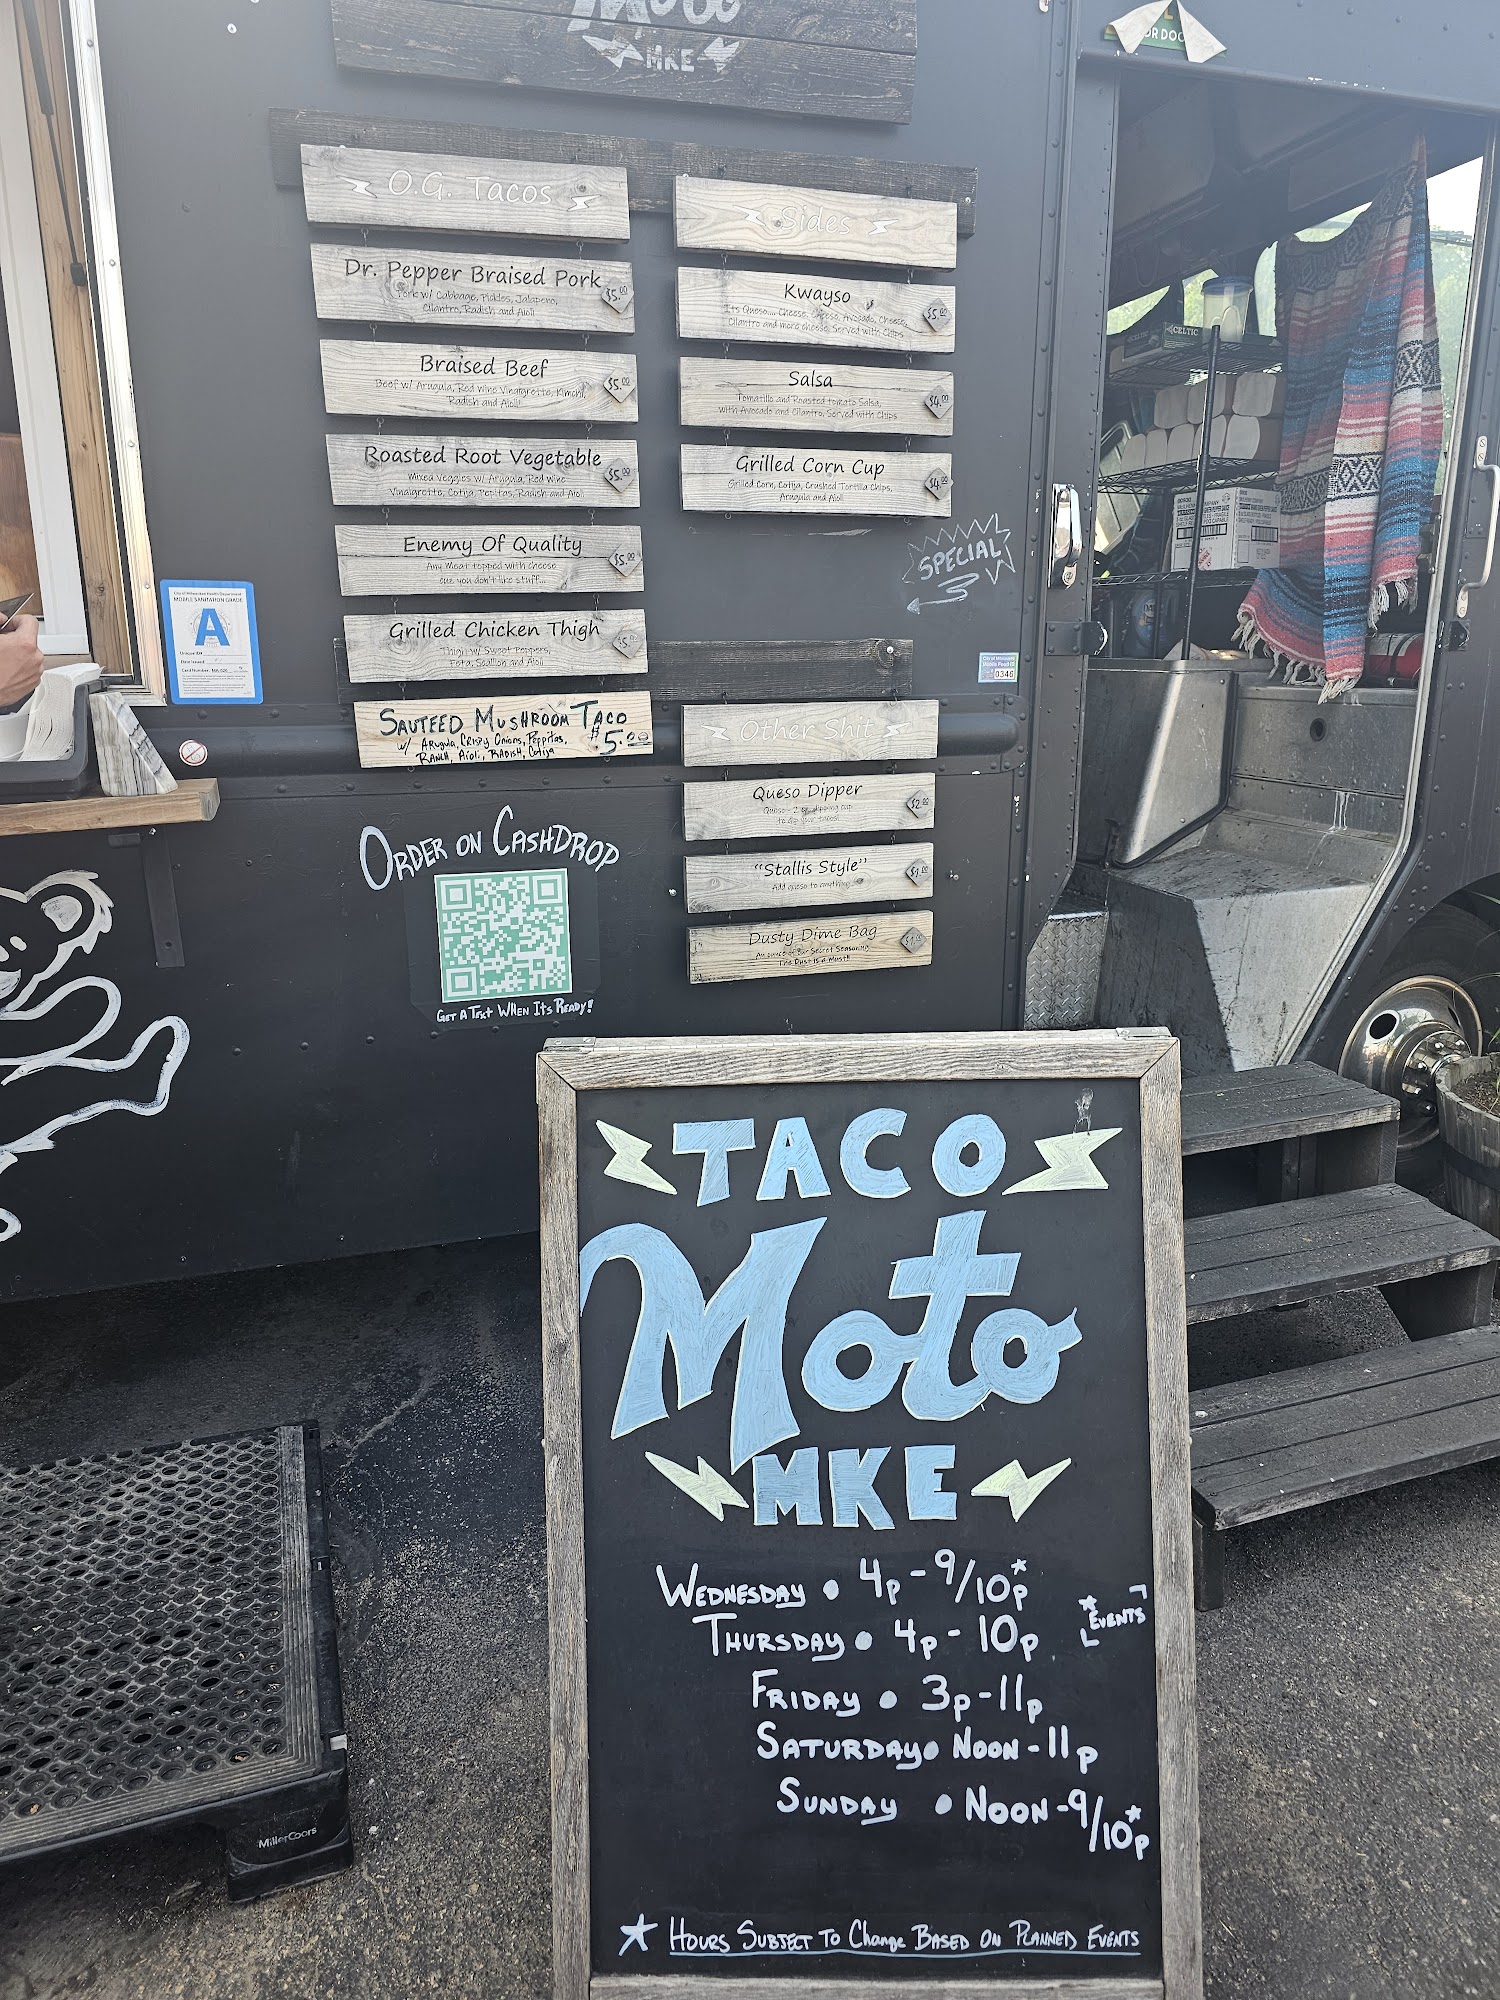 Moto
MKE
O.G. Tacos
Dr. Pepper Braised Pork
$5.00
Pork w/ Cabbage, Pickles, Jalapeno,
Cilantro, Radish and Aioli
Braised Beef
$5.00
Beef w/ Arugula, Red Wine Vinaigrette, Kimchi,
Radish and Aioli!
Roasted Root Vegetable
$5.00
Mixed Veggies w/ Arugula, Red Wine
Vinaigrette, Cotija, Pepitas, Radish and Aioli
Enemy Of Quality
$5.00
Any Meat topped with cheese
cuz you don't like stuff...
Grilled Chicken Thigh
$5.00
Thigh w/ Sweet Peppers,
Feta, Scallion and Aioli
Sauteed Mushroom Taco
w/ Arugula, Crispy Onions, Peppitas,
Ranch, Aioli, Radish, Cotija
$5.00
Sides
Kwayso
$5.00
Its Queso.... Cheese, Cheese, Avocado, Cheese,
Cilantro and more cheese, Served with Chips
Salsa
$4.00
Tomatillo and Roasted tomato Salsa,
with Avocado and Cilantro, Served with Chips
Grilled Corn Cup
$4.00
Grilled Corn, Cotija, Crushed Tortilla Chips,
Arugula and Aioli
SPECIAL
Other Shit
Queso Dipper
$2.00
to dip your tacos!
"Stallis Style"
$1.00
Add queso to anything
Dusty Dime Bag
An ounce of Our Secret Seasoning
The Dust is a Must!!
Order on CashDrop
Get A Text When Its Ready!
City of Milwaukee Health Department
MOBILE SANITATION GRADE
A
Date Issued
Card Number:
City of Milwaukee
Mobile Food
0346
OR DOC
CELTIC
TACO
Moto
MKE
Wednesday • 4p - 9/10p*
Thursday • 4p - 10p
*Events
Friday • 3p - 11p
Saturday • Noon - 11p
Sunday • Noon - 9/10p*
* Hours Subject To Change Based On Planned Events
MillerCoors